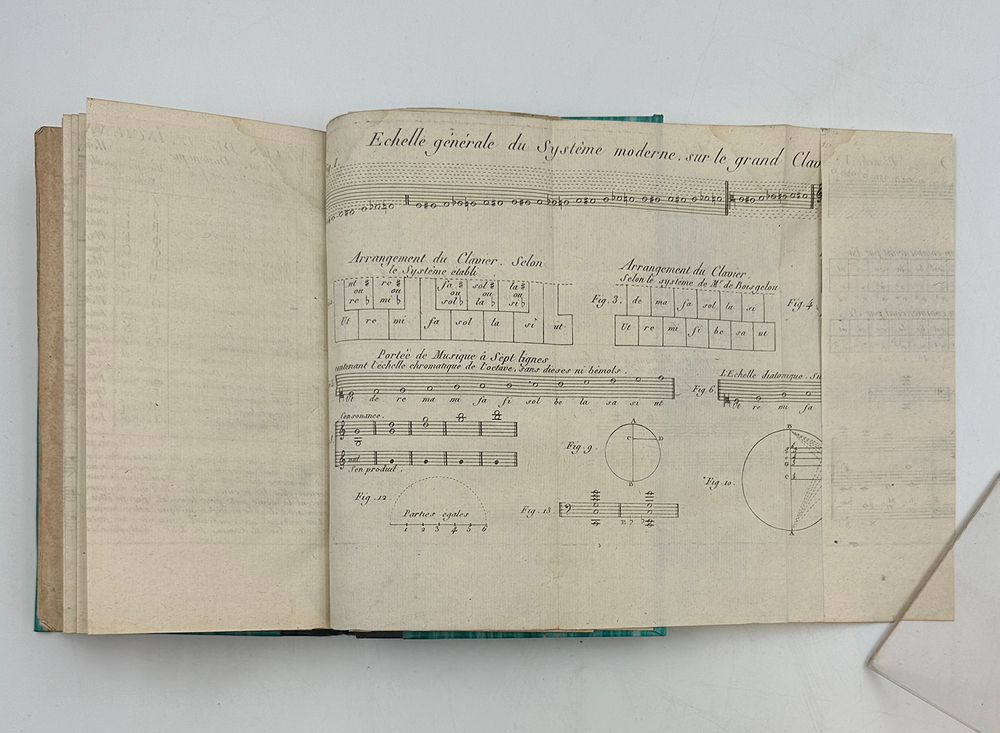 Echelle générale du Système moderne. sur le grand Clav
Fig 1.
Arrangement du Clavier. Selon
le Système etabli
ut # re # fa # sol # la #
ou ou ou ou ou
re b mi b sol b la b si b
Ut re mi fa sol la si ut
Arrangement du Clavier.
Selon le système de Mr. de Boisgelou
Fig. 3. de ma fa sol la si
Ut re mi fi be sa ut
Fig. 4
Portée de Musique à Sept lignes
contenant l'échelle chromatique de l'octave, sans dieses ni bémols.
Ut de re ma mi fa fi sol be la sa si ut
Fig. 6. L'Echelle diatonique. Su
Ut re mi fa
Consonance.
Son produit.
Fig. 9. A
C D
B
Fig. 10. B
C
A
Fig. 12.
Parties egales
1 2 3 4 5 6
Fig. 13.
B b